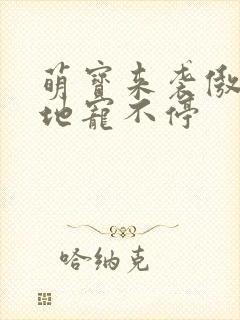 萌寶来袭傲
地寵不停
哈纳克